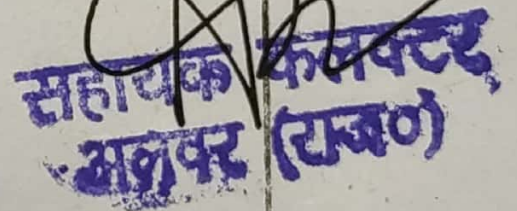 सहायक कलक्टर,
अलवर (राज०)